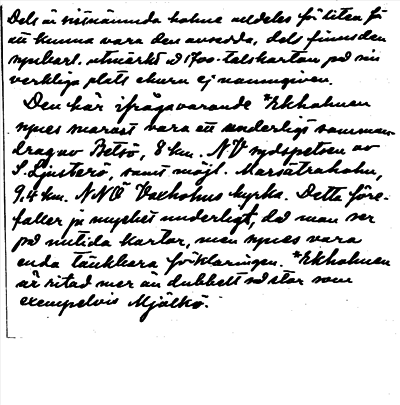 Dels är sistnämnda holme alldeles för liten för
att kunna vara den avsedda, dels finns den
synbarl. utmärkt å 1700-talskartan på sin
verkliga plats ehuru ej namngiven.
Den här ifrågavarande *Ekholmen
synes snarast vara ett underligt samman-
drag av Betsö, 8 km. NV sydspetsen av
S. Ljusterö, samt möjl. Marsätraholm,
9,4 km. NNO Vaxholms kyrka. Detta före-
faller ju mycket underligt, då man ser
på nutida kartor, men synes vara
enda tänkbara förklaringen. *Ekholmen
är ritad mer än dubbelt så stor som
exempelvis Mjölkö.